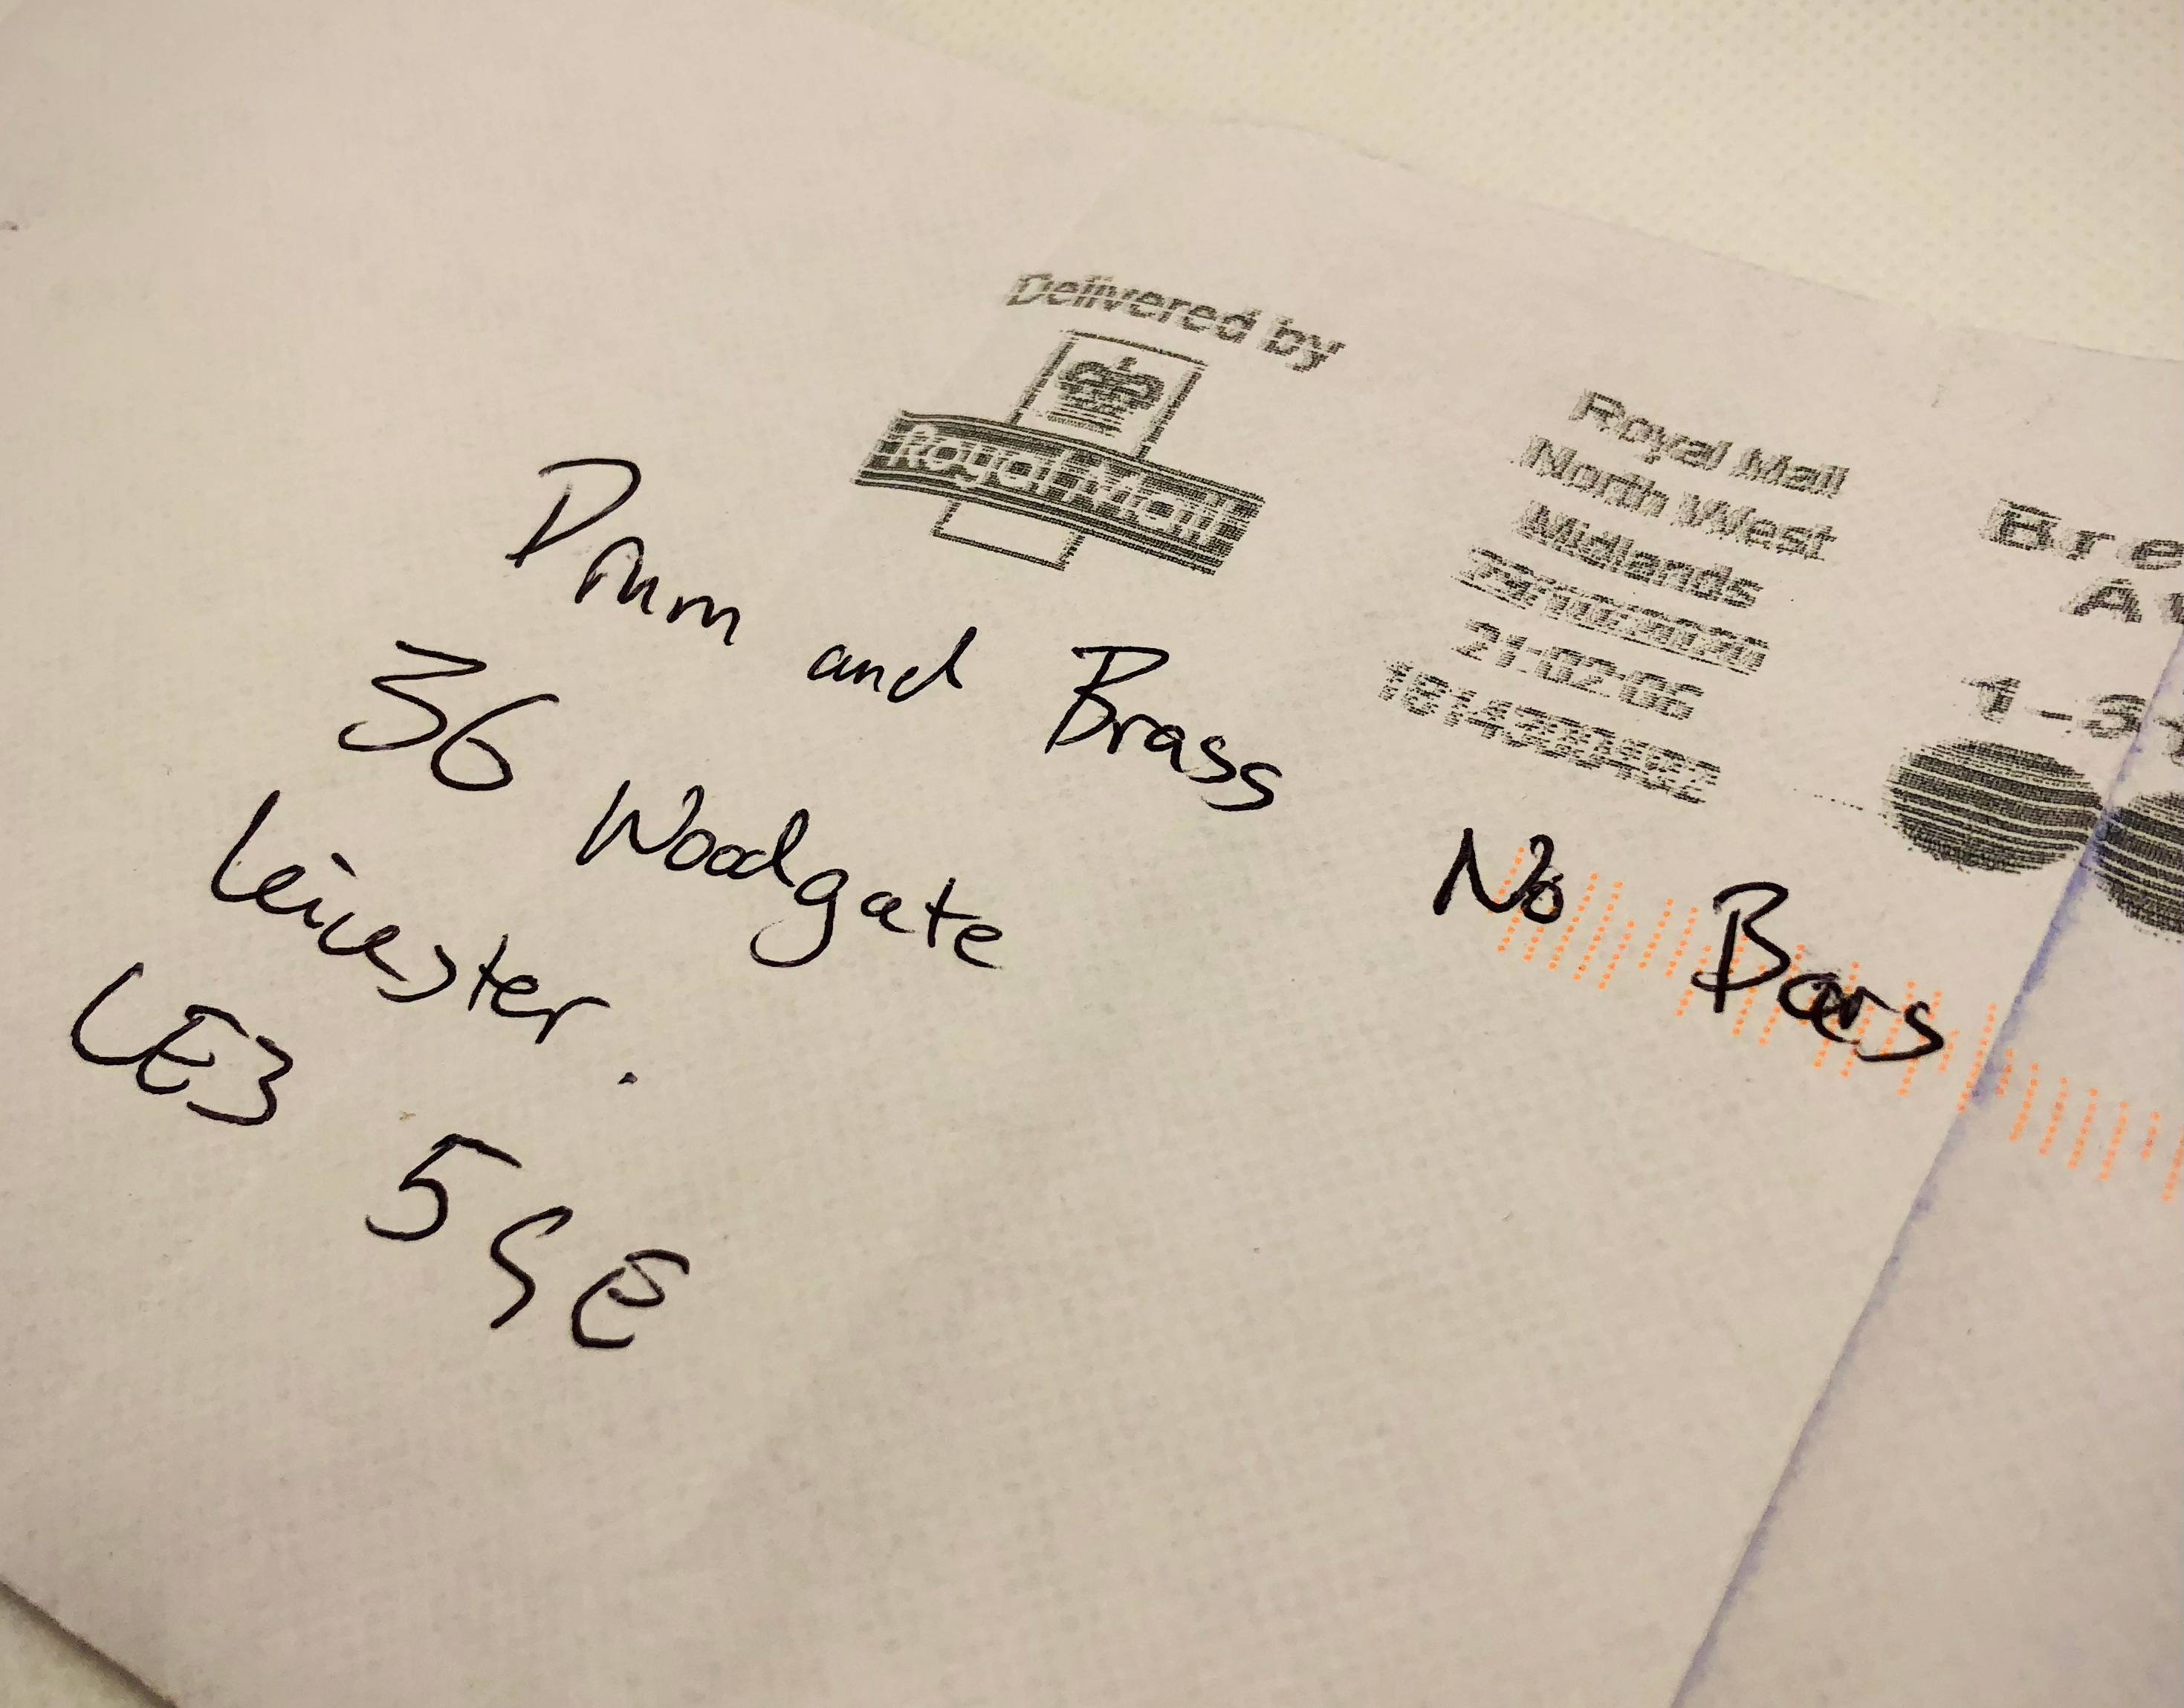 Delivered by
Royal Mail
Royal Mail
North West
Midlands
29/10/2020
21:02:06
1814300402
Bre
A
1-3-
Drum and Brass
36 Woodgate
Leicester.
LE3 5GE
No Bars